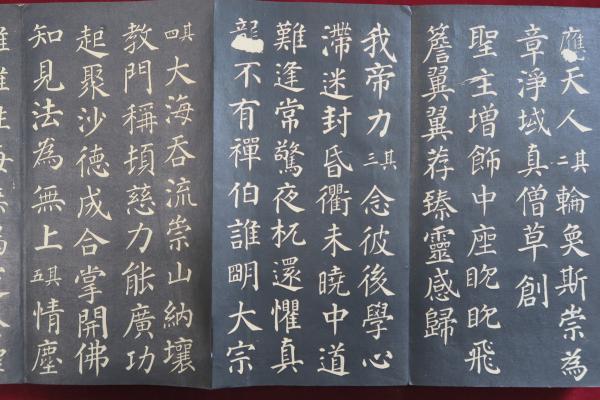 應天人其二輪奐斯崇為
章淨域真僧草創
聖主增飾中座眈眈飛
簷翼翼荐臻靈感歸
我帝力其三念彼後學心
滯迷封昏衢未曉中道
難逢常驚夜杌還懼真
龍不有禪伯誰眀大宗
其四大海吞流崇山納壤
教門稱頓慈力能廣功
起聚沙德成合掌開佛
知見法為無上其五情塵